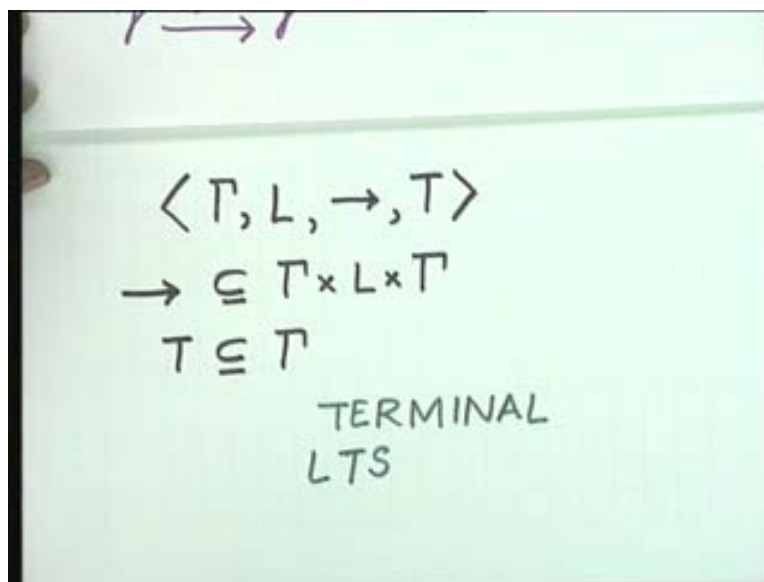 γ → γ
⟨Γ, L, →, T⟩
→ ⊆ Γ × L × Γ
T ⊆ Γ
TERMINAL
LTS